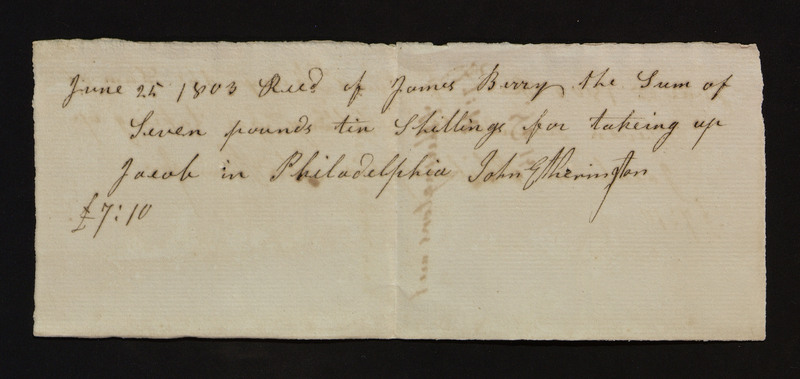 June 25 1803 Recd of James Berry the Sum of
Seven pounds tin Shillings for takeing up
Jacob in Philadelphia John Etherington
£7:10